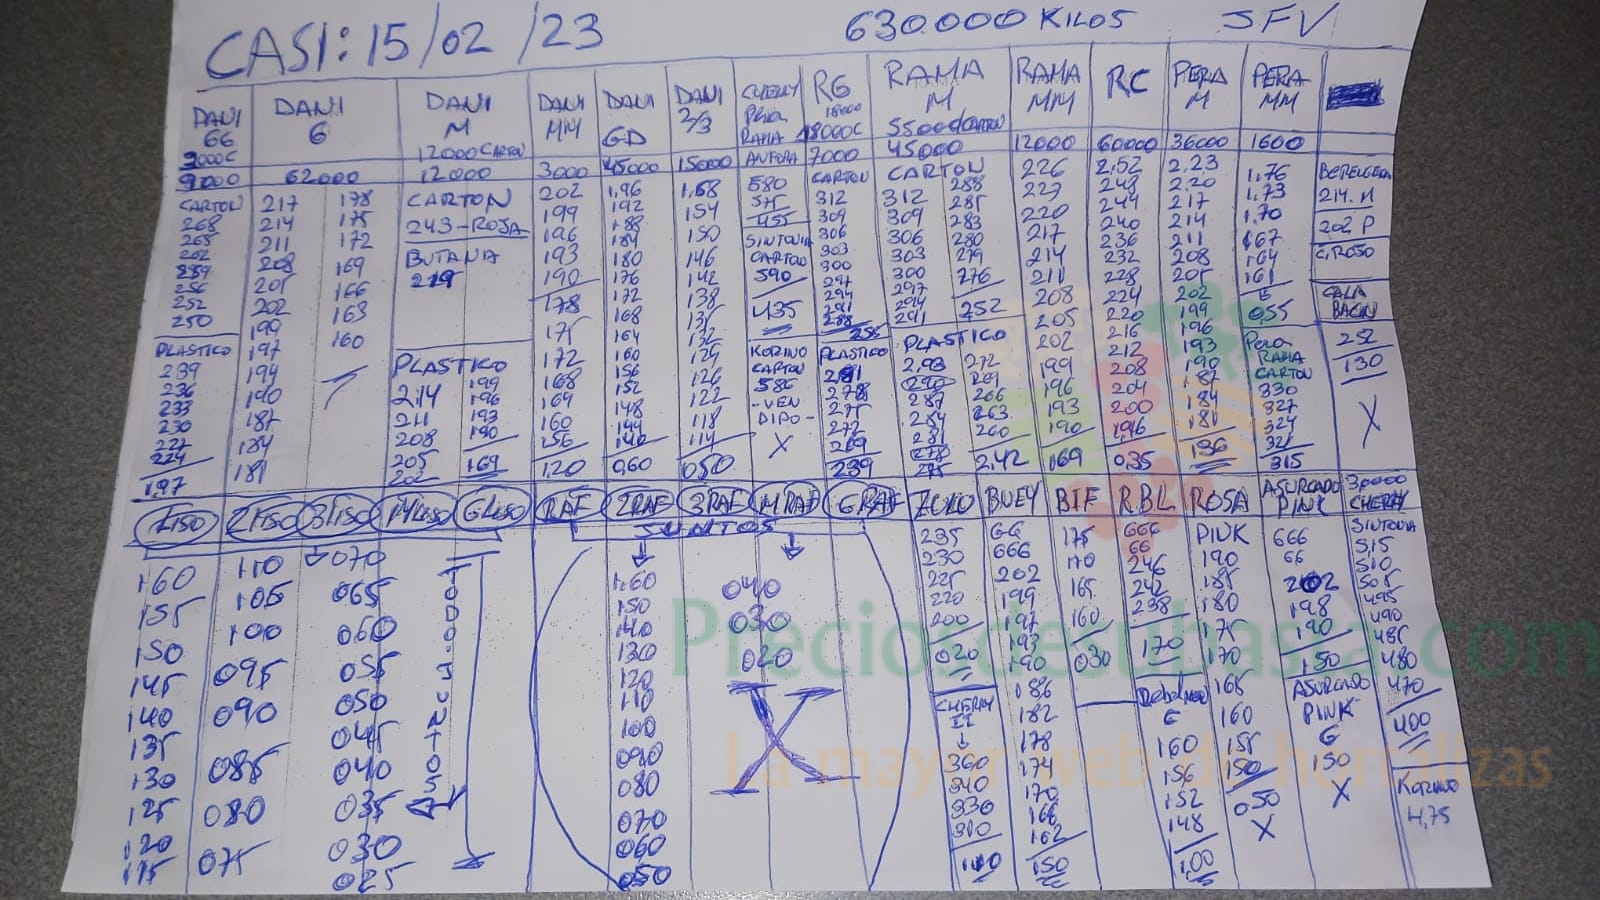 CASI: 15/02/23 630.000 KILOS JFV
DANI 66 DANI G DANI M DANI MM DANI GD DANI 2/3 CHERRY PERA RAMA RG RAMA M RAMA MM RC PERA M PERA MM
18000
12000 CARTON 18000C 55000 CARTON
9000 62000 12000 3000 45000 15000 ANFORA 7000 45000 12000 60000 36000 1600
CARTON 217 178 CARTON 202 1,96 1,68 580 CARTON CARTON 288 226 2,52 2,23 1,76 BERENGENA
268 214 175 243-ROJA 199 192 154 575 312 312 285 223 248 2,20 1,73 214.N
265 211 172 BUTANIA 196 188 150 455 309 309 283 220 244 217 1,70 202 P
262 208 169 219 193 184 146 SINTONIA 306 306 280 217 240 214 167
259 205 166 190 180 142 CARTON 303 303 279 214 236 211 164
256 202 163 178 176 138 590 300 300 276 211 232 208 161
252 199 160 175 172 135 435 297 297 252 208 228 205 E CALA
250 197 168 132 294 294 205 224 202 0,55 BACIN
PLASTICO 194 PLASTICO 172 164 KORINO 291 291 202 220 199 252
239 190 2,14 199 168 160 CARTON 288 PLASTICO 199 216 196 RAMA 130
236 187 211 196 164 156 585 255 2,93 272 196 212 193 CARTON X
233 184 208 193 160 152 -VEN PLASTICO 290 269 193 208 190 330
230 181 205 190 156 148 DIDO- 281 287 266 190 204 187 327
227 202 169 120 144 X 278 284 263 169 200 184 324
224 140 275 281 260 196 181 321
197 060 050 272 278 2,42 0,35 136 315
269 275
239
1LISO 2LISO 3LISO MLISO GLISO 1RAF 2RAF 3RAF MRAF GRAF ZORO BUEY BIF R.B.L ROSA ASURCADO PINK 30000 CHERRY
JUNTOS SINTONIA
160 110 070 1,60 040 235 66 175 666 PINK 666 5,15
155 105 065 150 030 230 666 170 66 190 66 510
150 100 060 140 020 225 202 165 246 185 202 505
145 095 055 130 X 220 199 160 242 180 198 495
140 090 050 120 200 197 030 238 175 190 490
135 085 045 110 020 193 170 170 150 485
130 080 040 100 CHERRY 190 165 ASURCADO 480
125 075 035 090 186 E 160 PINK 470
120 030 080 360 182 160 155 G 400
115 025 070 340 178 156 150 150 KORINO
060 330 174 152 0,50 X 4,75
050 310 170 148 X
100 166 1,00
162
150
Preciosdesubasta.com
La mayor web de hortalizas